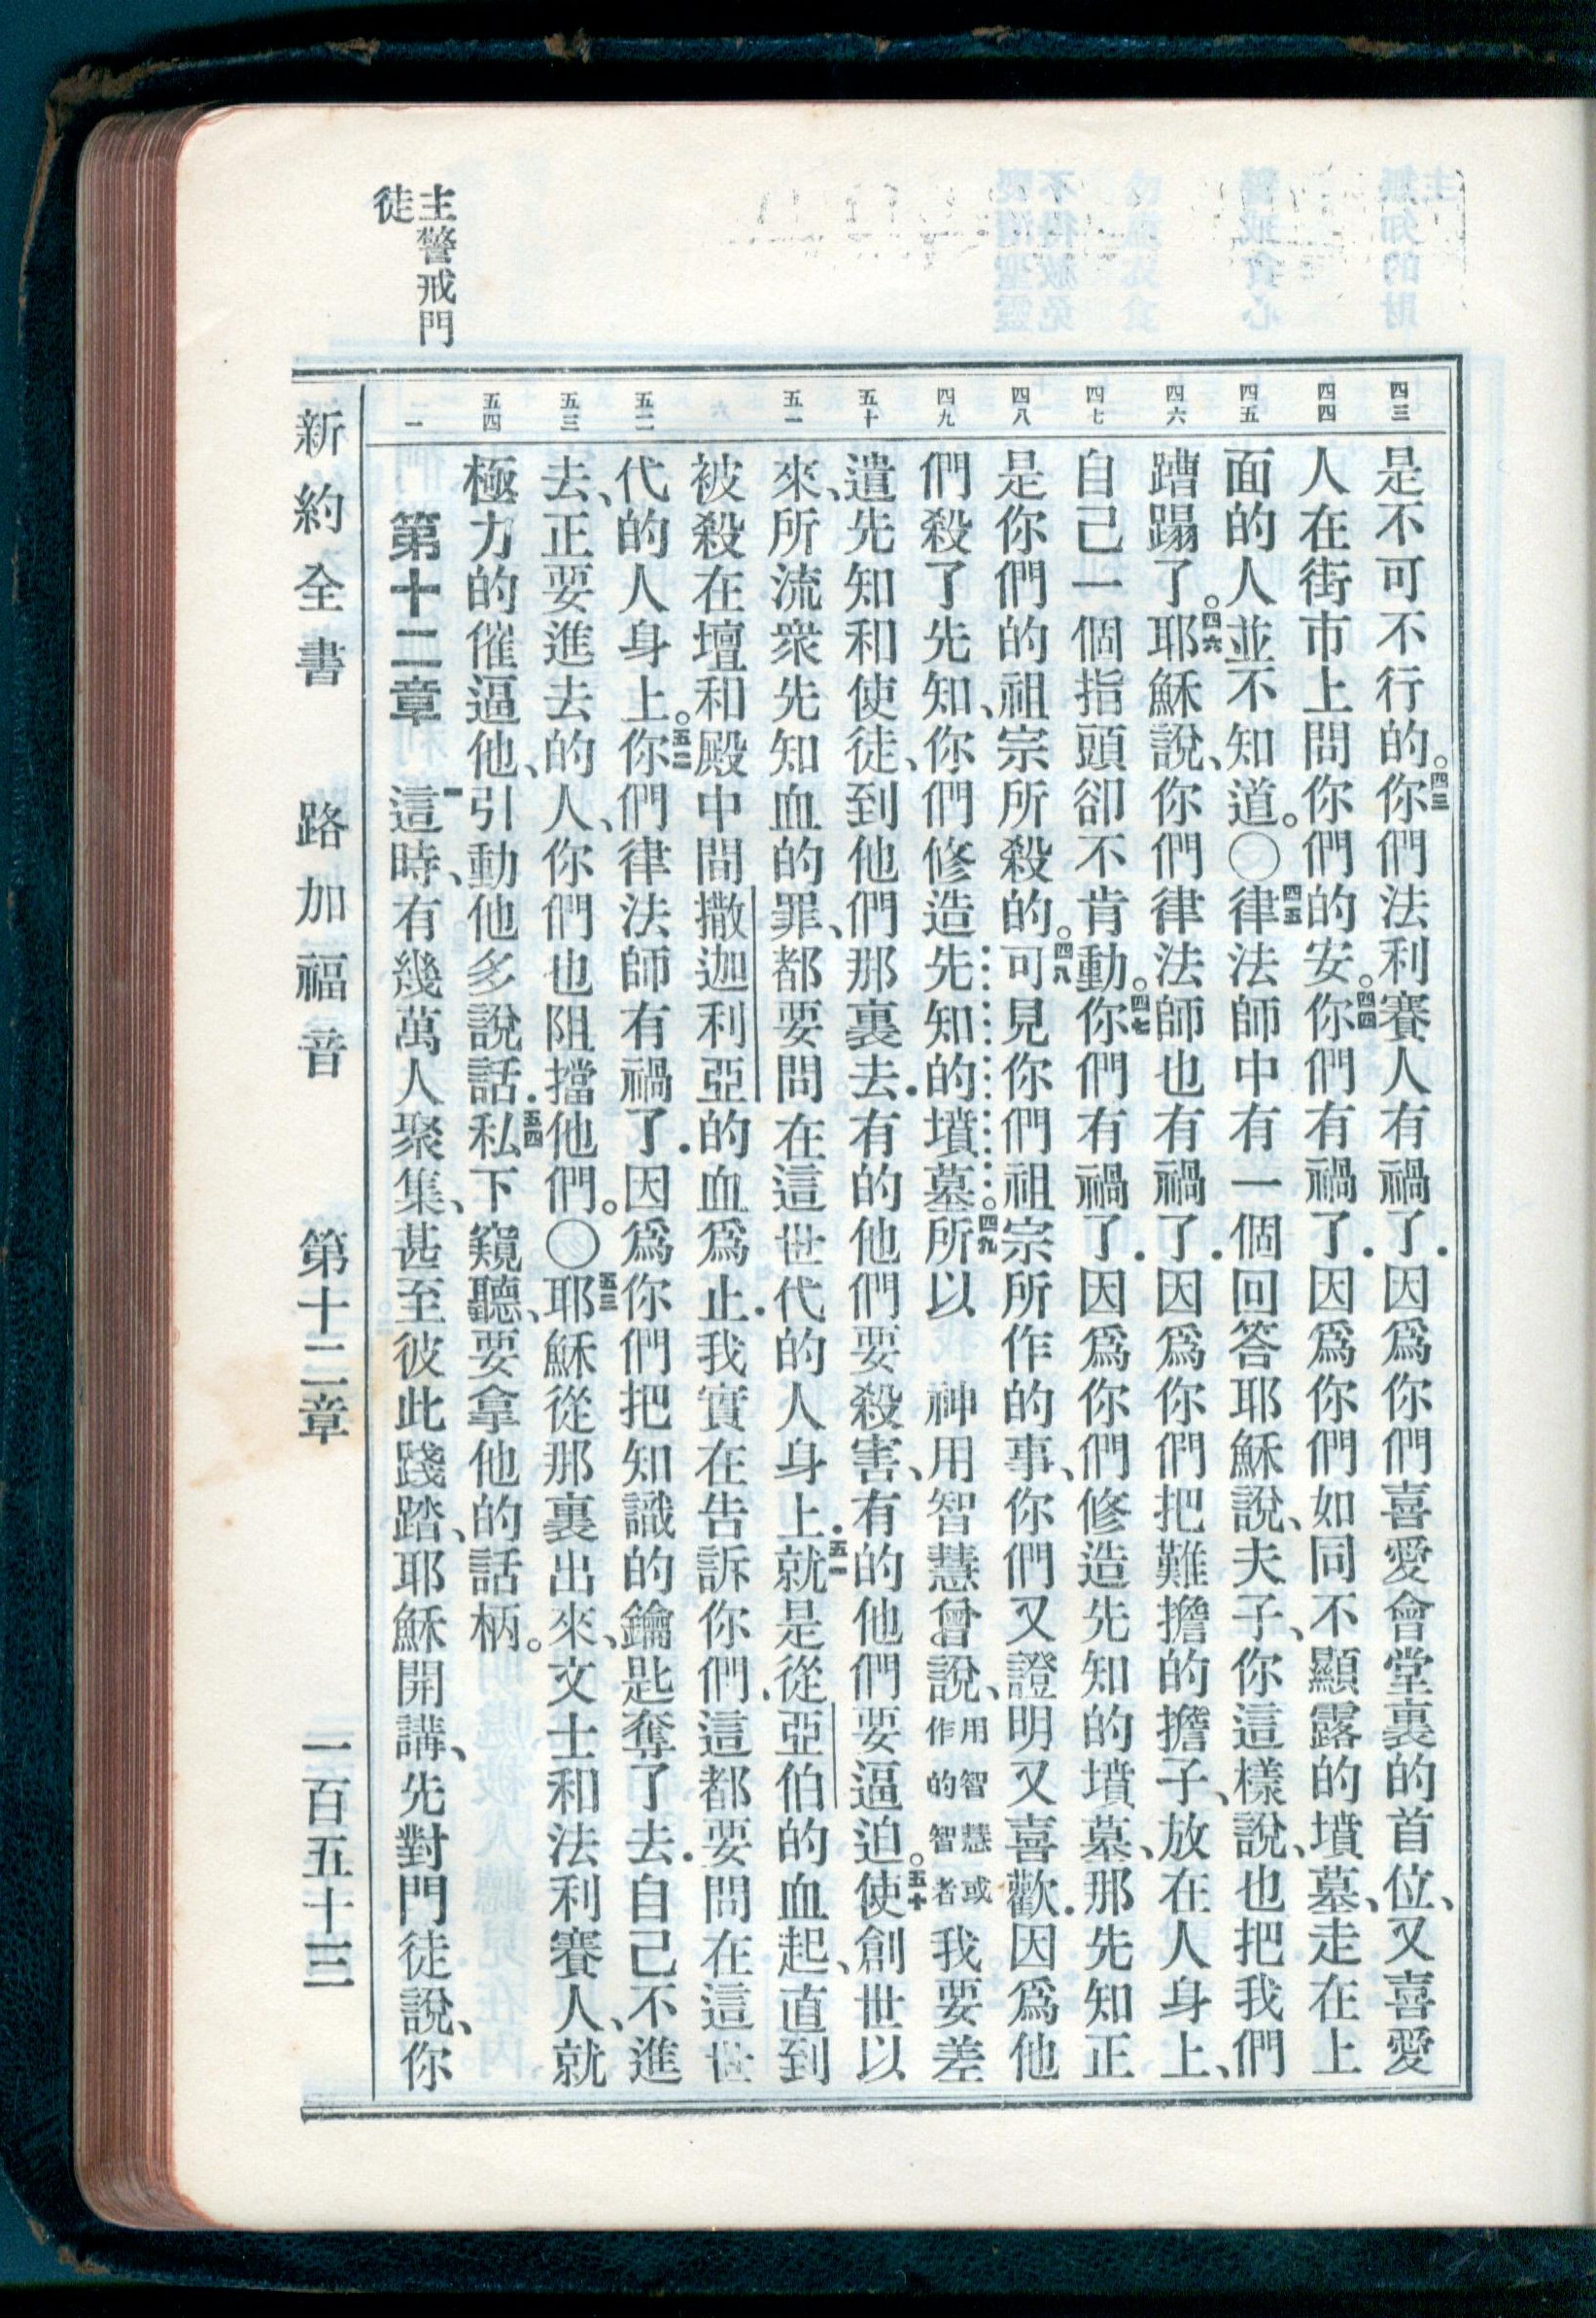 主警戒門
徒
四三
四四
四五
四六
四七
四八
四九
五十
五一
五二
五三
五四
一
是不可不行的。四三你們法利賽人有禍了．因爲你們喜愛會堂裏的首位、又喜愛
人在街市上問你們的安。四四你們有禍了．因爲你們如同不顯露的墳墓、走在上
面的人並不知道。〇四五律法師中有一個回答耶穌說、夫子、你這樣說、也把我們
蹧蹋了。四六耶穌說、你們律法師也有禍了．因爲你們把難擔的擔子、放在人身上、
自己一個指頭卻不肯動。四七你們有禍了．因爲你們修造先知的墳墓、那先知正
是你們的祖宗所殺的。四八可見你們祖宗所作的事、你們又證明又喜歡．因爲他
們殺了先知、你們修造先知的墳墓。四九所以　神用智慧曾說、用智慧或作的智者我要差
遣先知和使徒、到他們那裏去．有的他們要殺害、有的他們要逼迫。五十使創世以
來、所流衆先知血的罪、都要問在這世代的人身上．五一就是從亞伯的血起、直到
被殺在壇和殿中間撒迦利亞的血爲止．我實在告訴你們、這都要問在這世
代的人身上。五二你們律法師有禍了．因爲你們把知識的鑰匙奪了去．自己不進
去、正要進去的人、你們也阻擋他們。〇五三耶穌從那裏出來、文士和法利賽人、就
極力的催逼他、引動他多說話．五四私下窺聽、要拿他的話柄。
第十二章　一這時、有幾萬人聚集、甚至彼此踐踏、耶穌開講、先對門徒說、你
新約全書　路加福音　第十二章　一百五十三